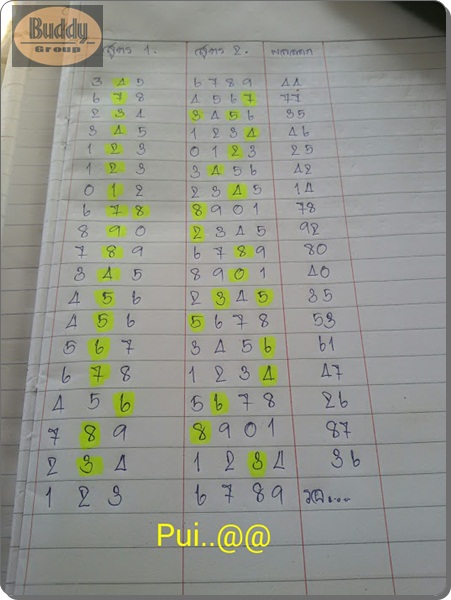 Buddy
Group
สูตร 1. สูตร 2. ผลออก
3 4 5 6 7 8 9 44
6 7 8 4 5 6 7 77
2 3 4 3 4 5 6 35
3 4 5 1 2 3 4 46
1 2 3 0 1 2 3 25
1 2 3 3 4 5 6 42
0 1 2 2 3 4 5 14
6 7 8 8 9 0 1 78
8 9 0 2 3 4 5 92
7 8 9 6 7 8 9 80
3 4 5 8 9 0 1 40
4 5 6 2 3 4 5 35
4 5 6 5 6 7 8 53
5 6 7 3 4 5 6 61
6 7 8 1 2 3 4 47
4 5 6 5 6 7 8 26
7 8 9 8 9 0 1 87
2 3 4 1 2 3 4 36
1 2 3 6 7 8 9 รอ....
Pui..@@